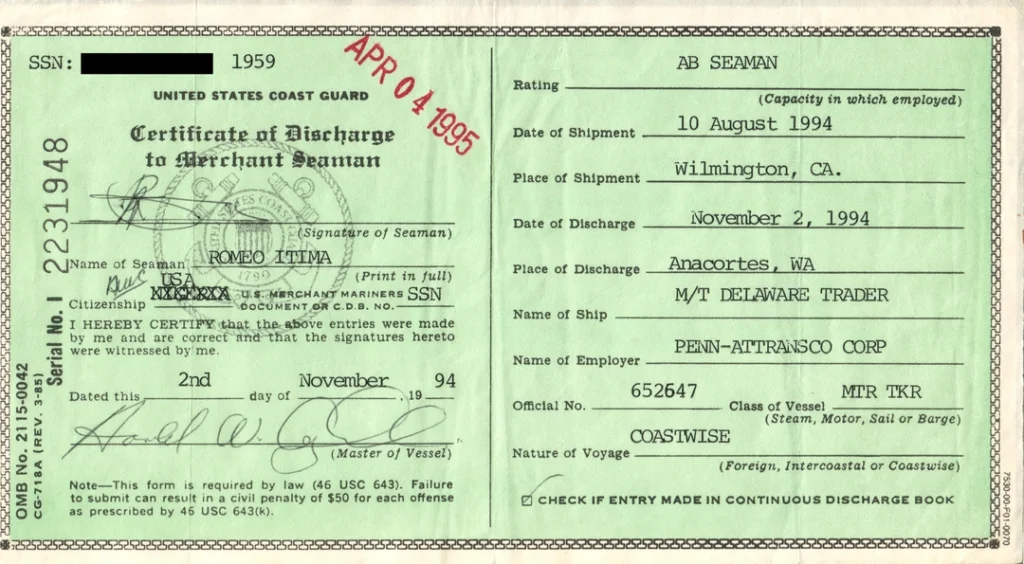 SSN: 1959
APR 04 1995
UNITED STATES COAST GUARD
Certificate of Discharge
to Merchant Seaman
(Signature of Seaman)
Name of Seaman ROMEO ITIMA
(Print in full)
USA
Citizenship U.S. MERCHANT MARINERS SSN
DOCUMENT OR C.D.B. NO.
I HEREBY CERTIFY that the above entries were made
by me and are correct and that the signatures hereto
were witnessed by me.
Dated this 2nd day of November, 19 94
Harold W.
(Master of Vessel)
Note—This form is required by law (46 USC 643). Failure
to submit can result in a civil penalty of $50 for each offense
as prescribed by 46 USC 643(k).
Serial No. 1 2231948
OMB No. 2115-0042
CG-718A (REV. 3-85)
UNITED STATES COAST GUARD
1790
Rating AB SEAMAN
(Capacity in which employed)
Date of Shipment 10 August 1994
Place of Shipment Wilmington, CA.
Date of Discharge November 2, 1994
Place of Discharge Anacortes, WA
Name of Ship M/T DELAWARE TRADER
Name of Employer PENN-ATTRANSCO CORP
Official No. 652647 Class of Vessel MTR TKR
(Steam, Motor, Sail or Barge)
Nature of Voyage COASTWISE
(Foreign, Intercoastal or Coastwise)
CHECK IF ENTRY MADE IN CONTINUOUS DISCHARGE BOOK
7530-00-F01-0070